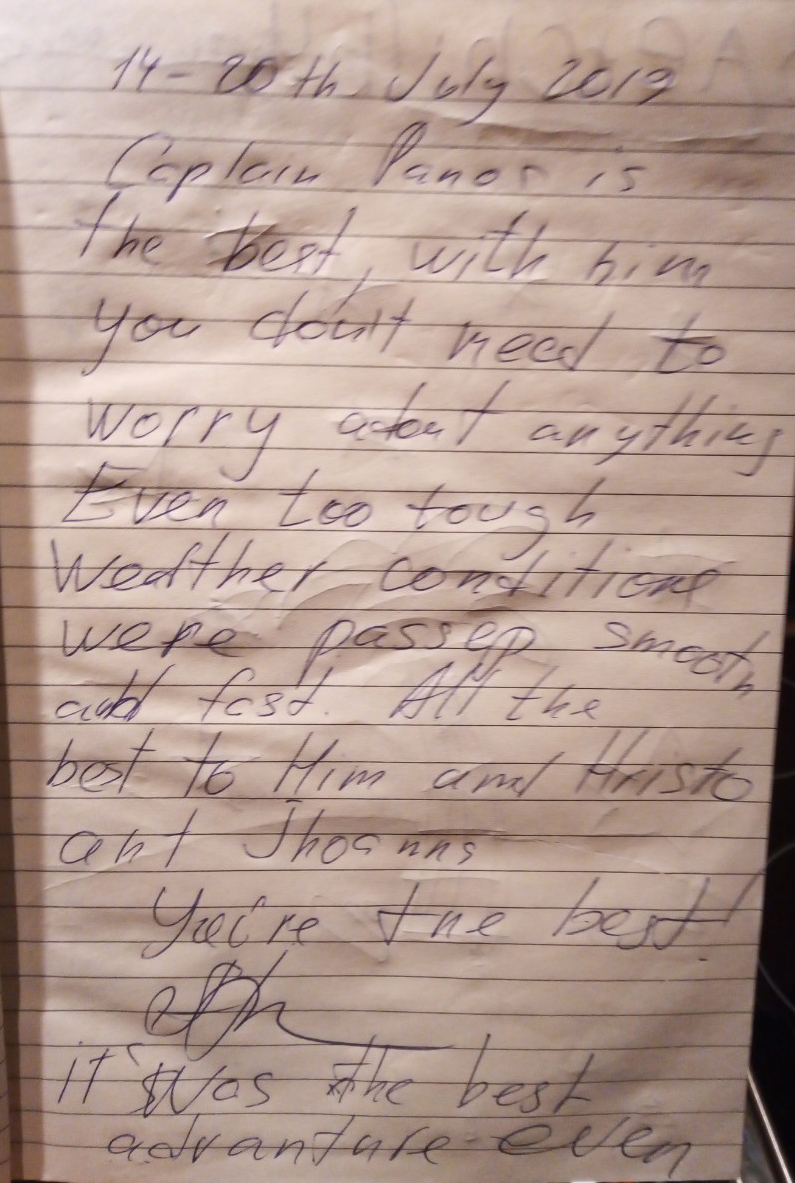 14-20th July 2019
Captain Panos is
the best, with him
you don't need to
worry about anything
Even too tough
Weather conditions
were passed smooth
and fast. All the
best to Him and Hristo
ant Jhoanns
You're the best!
it was the best
advanture even